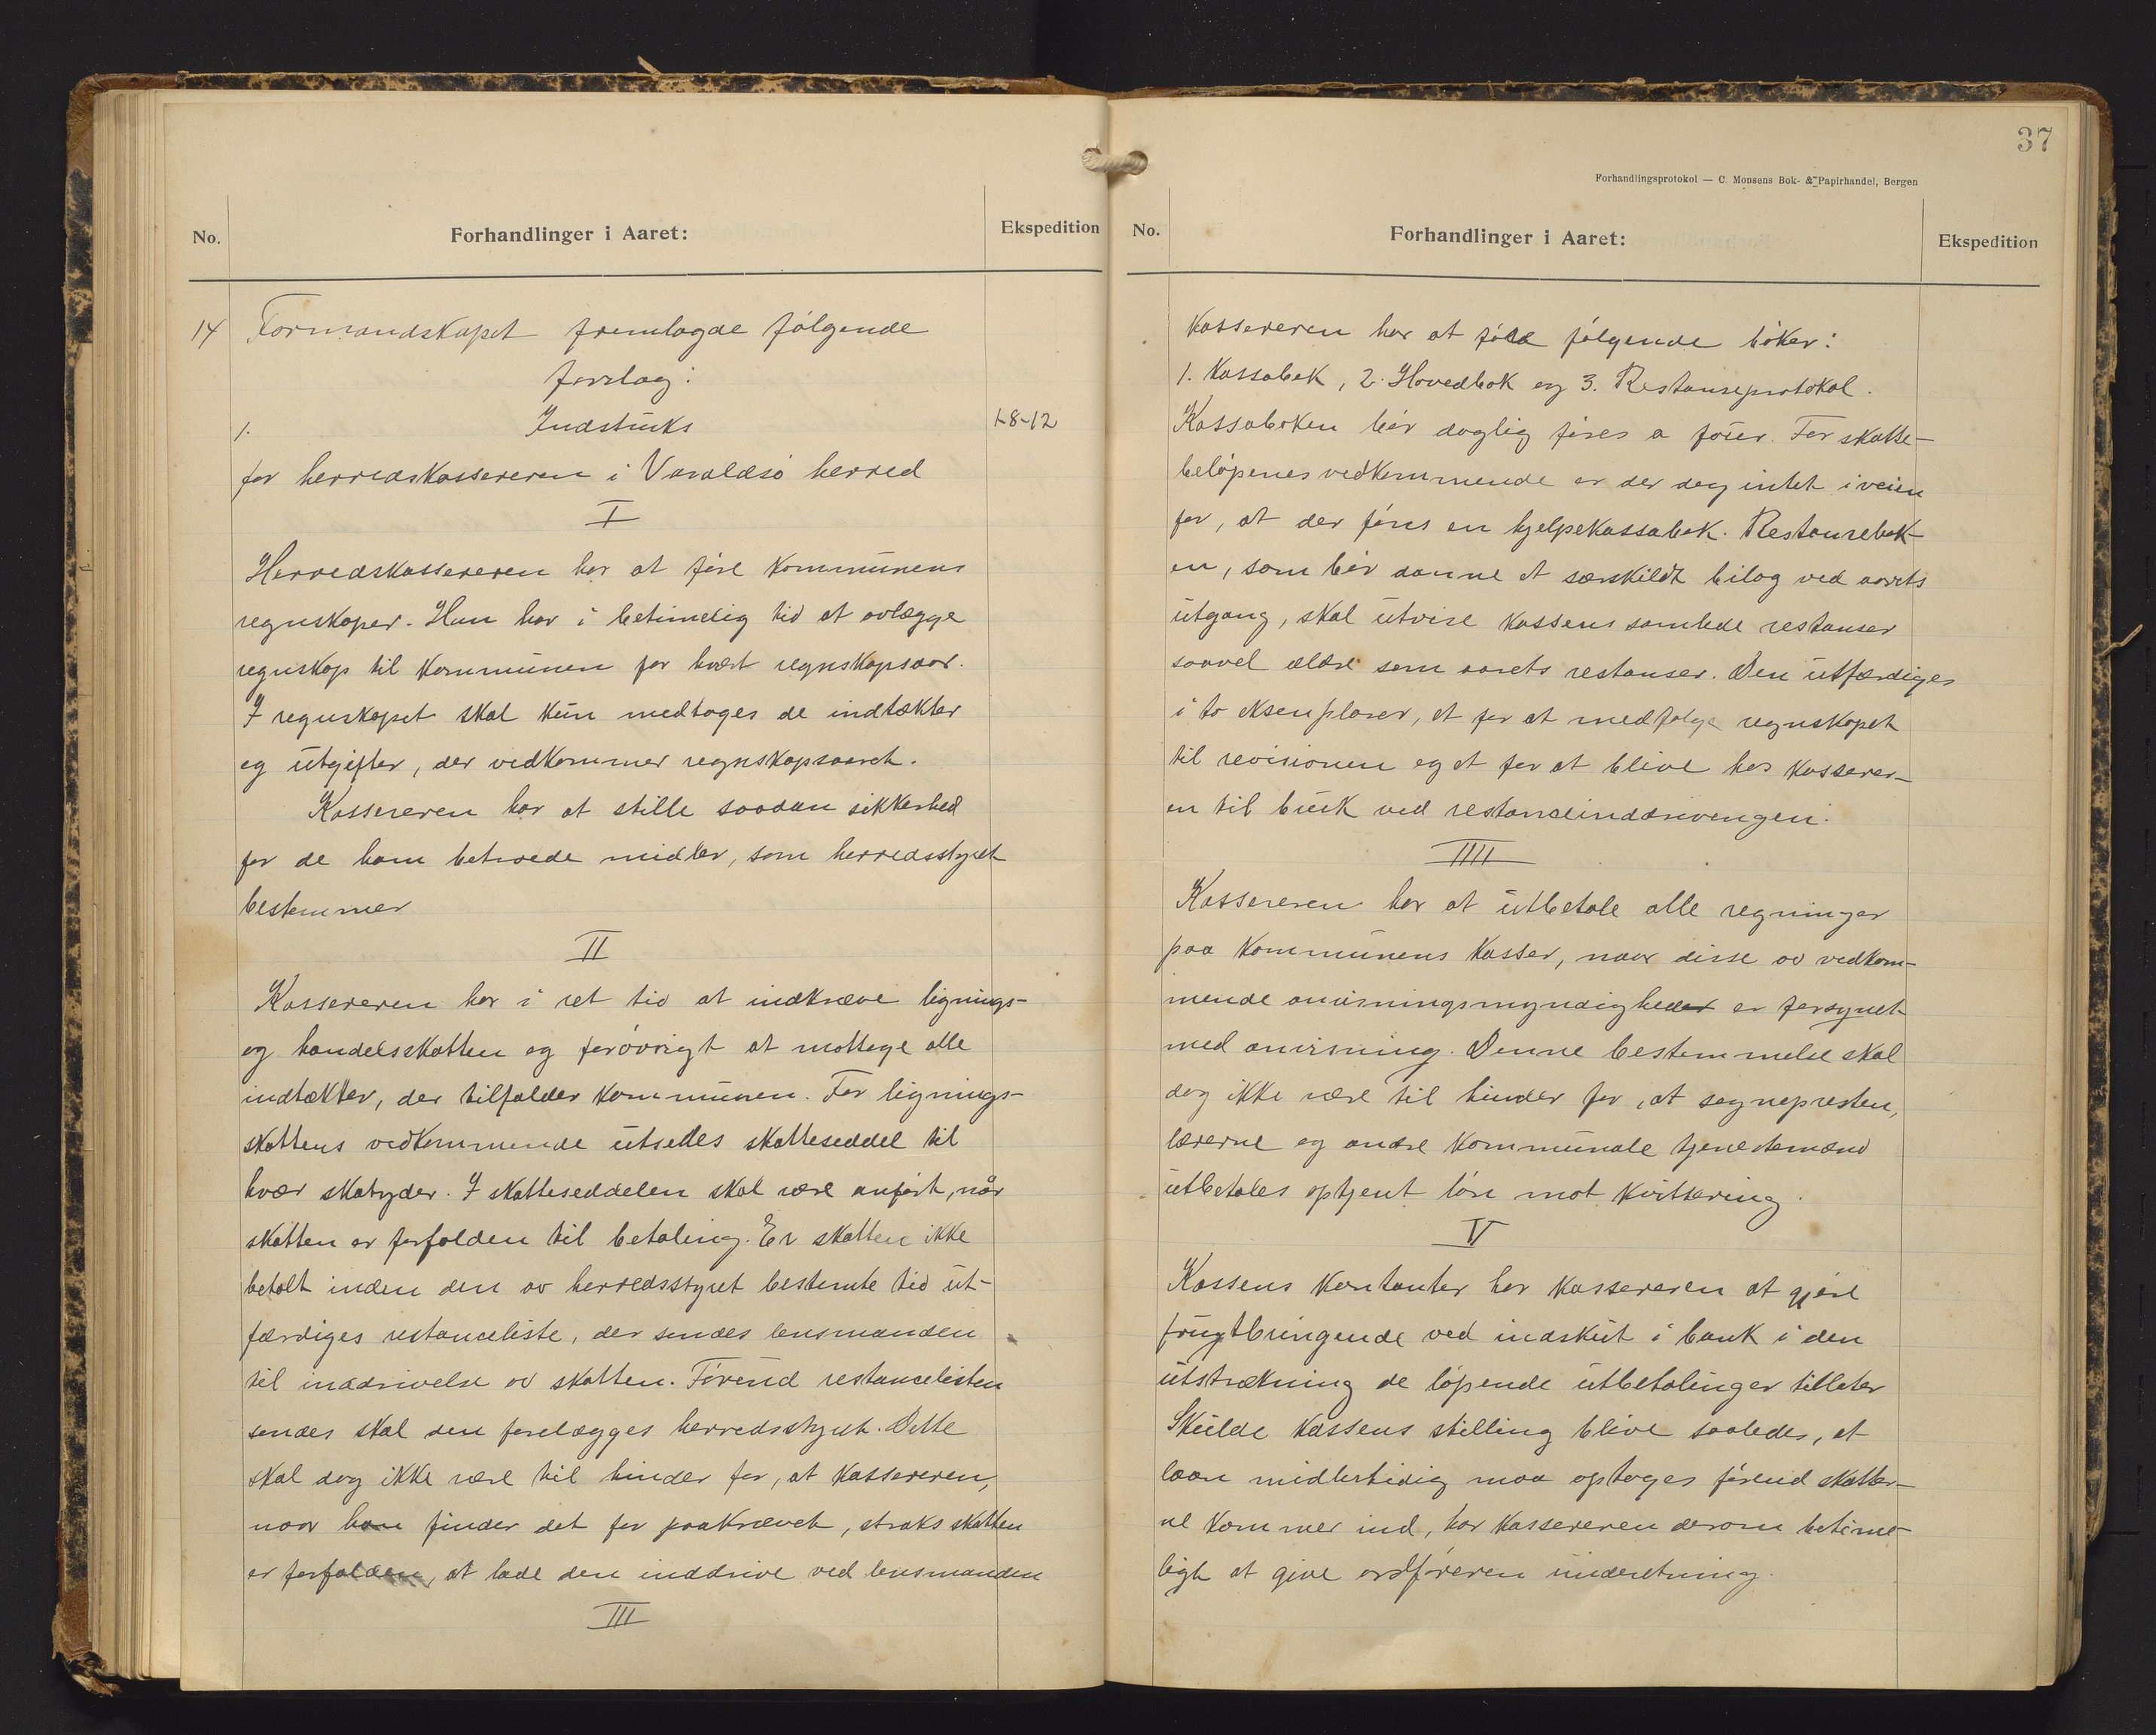 No.
Forhandlinger i Aaret:
Ekspedition
14 Formandskapet fremlagde følgende
forslag:
1. Indstruks
1-8-12
for herredskassereren i Varaldsø herred
I
Herredskassereren har at føre kommunens
regnskaper. Han har i betimelig tid at avlægge
regnskap til kommunen for hvært regnskapsaar.
I regnskapet skal kun medtages de indtækter
og utgifter, der vedkommer regnskapsaaret.
Kassereren har at stille saadan sikkerhed
for de ham betroede midler, som herredsstyret
bestemmer
II
Kassereren har i ret tid at indkræve lignings-
og handelsskatten og forøvrigt at mottage alle
indtækter, der tilfalder kommunen. For lignings-
skattens vedkommende utsedes skatteseddel til
hvær skatyder. I skatteseddelen skal være anført, når
skatten er forfalden til betaling. Er skatten ikke
betalt inden den av herredsstyret bestemte tid ut-
færdiges restanceliste, der sendes lensmanden
til inddrivelse av skatten. Førend restancelisten
sendes skal den forelægges herredsstyret. Dette
skal dog ikke være til hinder for, at kassereren,
naar han finder det for paakrævet, straks skatten
er forfalden, at lade den inddrive ved lensmanden
III
37
Forhandlingsprotokol — C. Monsens Bok- & Papirhandel, Bergen
No.
Forhandlinger i Aaret:
Ekspedition
Kassereren har at føre følgende bøker:
1. Kassabok, 2. Hovedbok og 3. Restanseprotokol.
Kassaboken bør daglig føres a føur. For skatte-
beløpenes vedkommende er der dog intet i veien
for, at der føres en hjelpekassabok. Restansebok-
en, som bør danne et særskildt bilag ved aarets
utgang, skal utvise kassens samlede restanser
saavel ældre som aarets restanser. Den utfærdiges
i to eksemplarer, et for at medfølge regnskapet
til revisionen og et for at blive hos kasserer-
en til bruk ved restanseinddrivengen.
IIII
Kassereren har at utbetale alle regninger
paa kommunens kasser, naar disse av vedkom-
mende anvisningsmyndigheder er forsynet
med anvisning. Denne bestemmelse skal
dog ikke være til hinder for, at sognepresten,
lærerne og andre kommunale tjenestemænd
utbetales optjent løn mot kvittering.
V
Kassens kontanter har kassereren at gjøre
frugtbringende ved indskut i bank i den
utstrækning de løpende utbetalinger tillater
Skulde kassens stilling blive saaledes, at
laan midlertidig maa optages førend skatter-
ne kommer ind, har kassereren derom betime-
ligt at give ordføreren underetning.